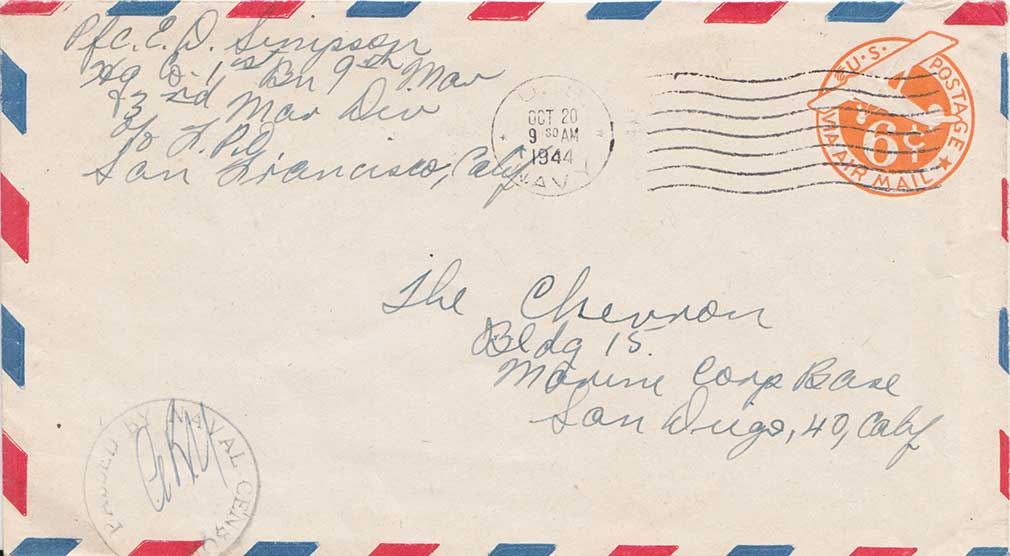 Pfc. E. D. Simpson
Hq Co. 1st Bn 9th Mar
3rd Mar Div
c/o F.P.O.
San Francisco, Calif
U.S.
OCT 20
9 30 AM
1944
NAVY
U.S. POSTAGE
6¢
VIA AIR MAIL
The Chevron
Bldg 15.
Marine Corp Base
San Diego, 40, Calif
PASSED BY NAVAL CENSO